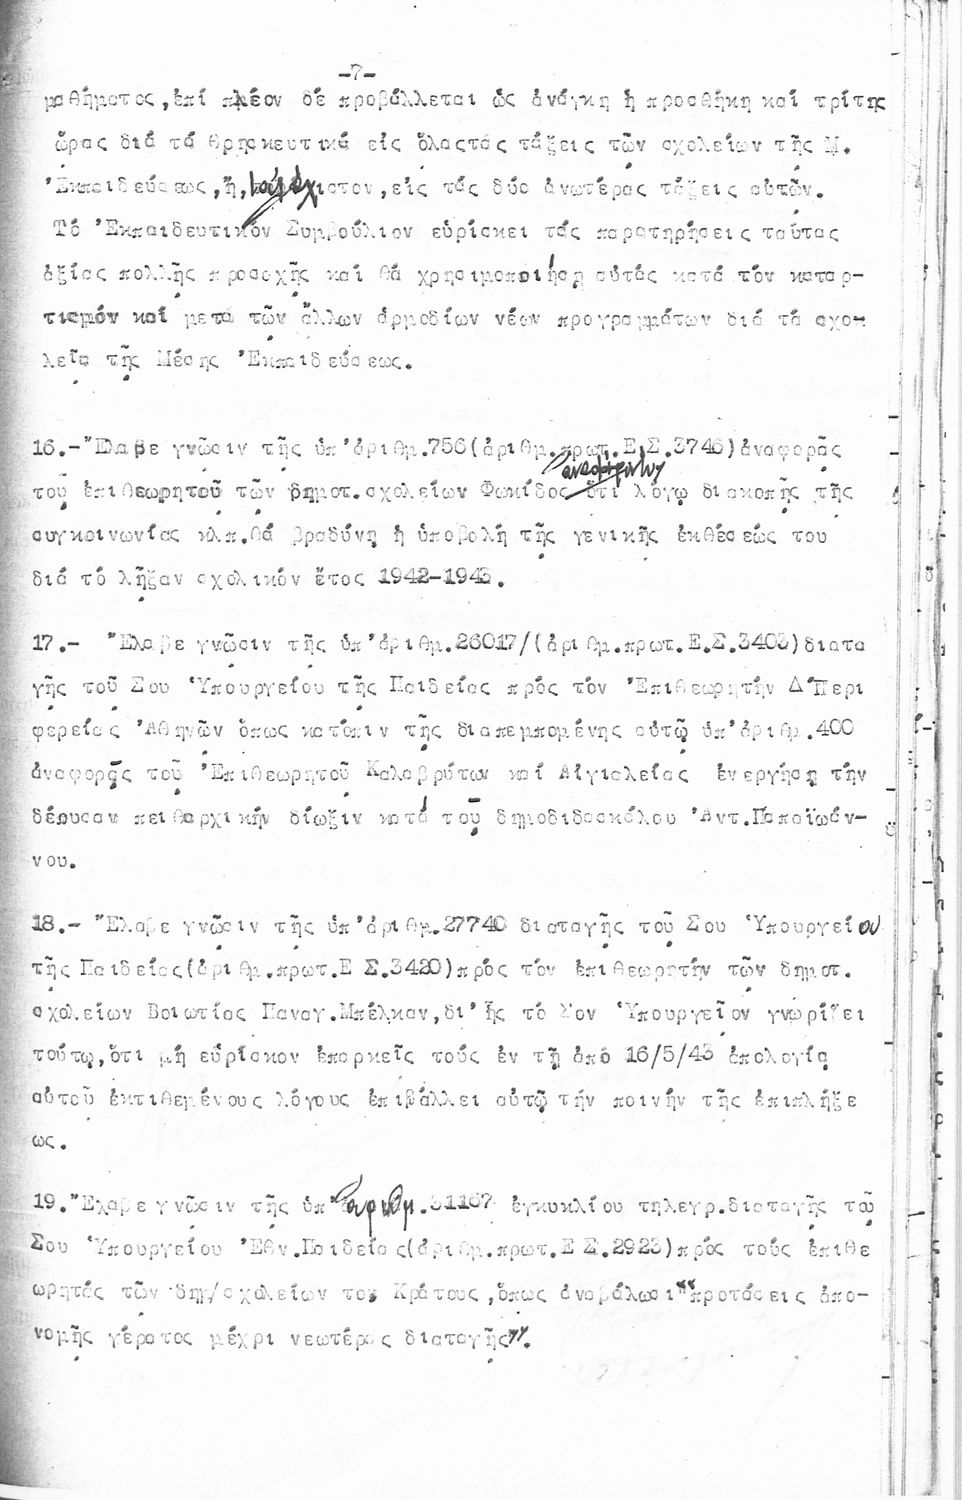 -7-
μαθήματος,ἐπί πλέον δέ προβάλλεται ὡς ἀνάγκη ἡ προσθήκη καί τρίτης
ὥρας διά τά θρησκευτικά εἰς ὅλαςτάς τάξεις τῶν σχολείων τῆς Μ.
Ἐκπαιδεύσεως,ἤ,τοὐλάχιστον,εἰς τάς δύο ἀνωτέρας τάξεις αὐτῶν.
Τό Ἐκπαιδευτικόν Συμβούλιον εὑρίσκει τάς παρατηρήσεις ταύτας
ἀξίας πολλῆς προσοχῆς καί θά χρησιμοποιήσῃ αὐτάς κατά τόν καταρ-
τισμόν καί μετά τῶν ἄλλων ἁρμοδίων νέων προγραμμάτων διά τά σχο-
λεῖα τῆς Μέσης Ἐκπαιδεύσεως.
16.-Ἔλαβε γνῶσιν τῆς ὑπ'ἀριθμ.756(ἀριθμ.πρωτ.Ε.Σ.3746)ἀναφορᾶς
τοῦ ἐπιθεωρητοῦ τῶν δημοτ.σχολείων Φωκίδος ὅτι λόγῳ διακοπῆς τῆς
συγκοινωνίας κλπ.θά βραδύνῃ ἡ ὑποβολή τῆς γενικῆς ἐκθέσεώς του
διά τό λῆξαν σχολικόν ἔτος 1942-1943.
17.- Ἔλαβε γνῶσιν τῆς ὑπ'ἀριθμ.26017/(ἀριθμ.πρωτ.Ε.Σ.3403)διατα
γῆς τοῦ Σου Ὑπουργείου τῆς Παιδείας πρός τόν Ἐπιθεωρητήν Δ'Περι
φερείας Ἀθηνῶν ὅπως κατόπιν τῆς διαπεμπομένης αὐτῷ ὑπ'ἀριθμ.400
ἀναφορᾶς τοῦ Ἐπιθεωρητοῦ Καλαβρύτων καί Αἰγιαλείας ἐνεργήσῃ τήν
δέουσαν πειθαρχικήν δίωξιν κατά τοῦ δημοδιδασκάλου Ἀντ.Παπαϊωάν-
νου.
18.- Ἔλαβε γνῶσιν τῆς ὑπ'ἀριθμ.27740 διαταγῆς τοῦ Σου Ὑπουργείου
τῆς Παιδείας(ἀριθμ.πρωτ.Ε Σ.3420)πρός τόν ἐπιθεωρητήν τῶν δημοτ.
σχολείων Βοιωτίας Παναγ.Μπέλκαν,δι'ἧς τό Σον Ὑπουργεῖον γνωρίζει
τούτῳ,ὅτι μή εὑρίσκον ἐπαρκεῖς τούς ἐν τῇ ἀπό 16/5/43 ἀπολογίᾳ
αὐτοῦ ἐκτιθεμένους λόγους ἐπιβάλλει αὐτῷ τήν ποινήν τῆς ἐπιπλήξε
ως.
19.Ἔλαβε γνῶσιν τῆς ὑπ'ἀριθμ.31167 ἐγκυκλίου τηλεγρ.διαταγῆς τοῦ
Σου Ὑπουργείου Ἐθν.Παιδείας(ἀριθμ.πρωτ.Ε Σ.2923)πρός τούς ἐπιθε
ωρητάς τῶν δημ/σχολείων του Κράτους,ὅπως ἀναβάλωσι"προτάσεις ἀπο-
νομῆς γέρατος μέχρι νεωτέρας διαταγῆς".